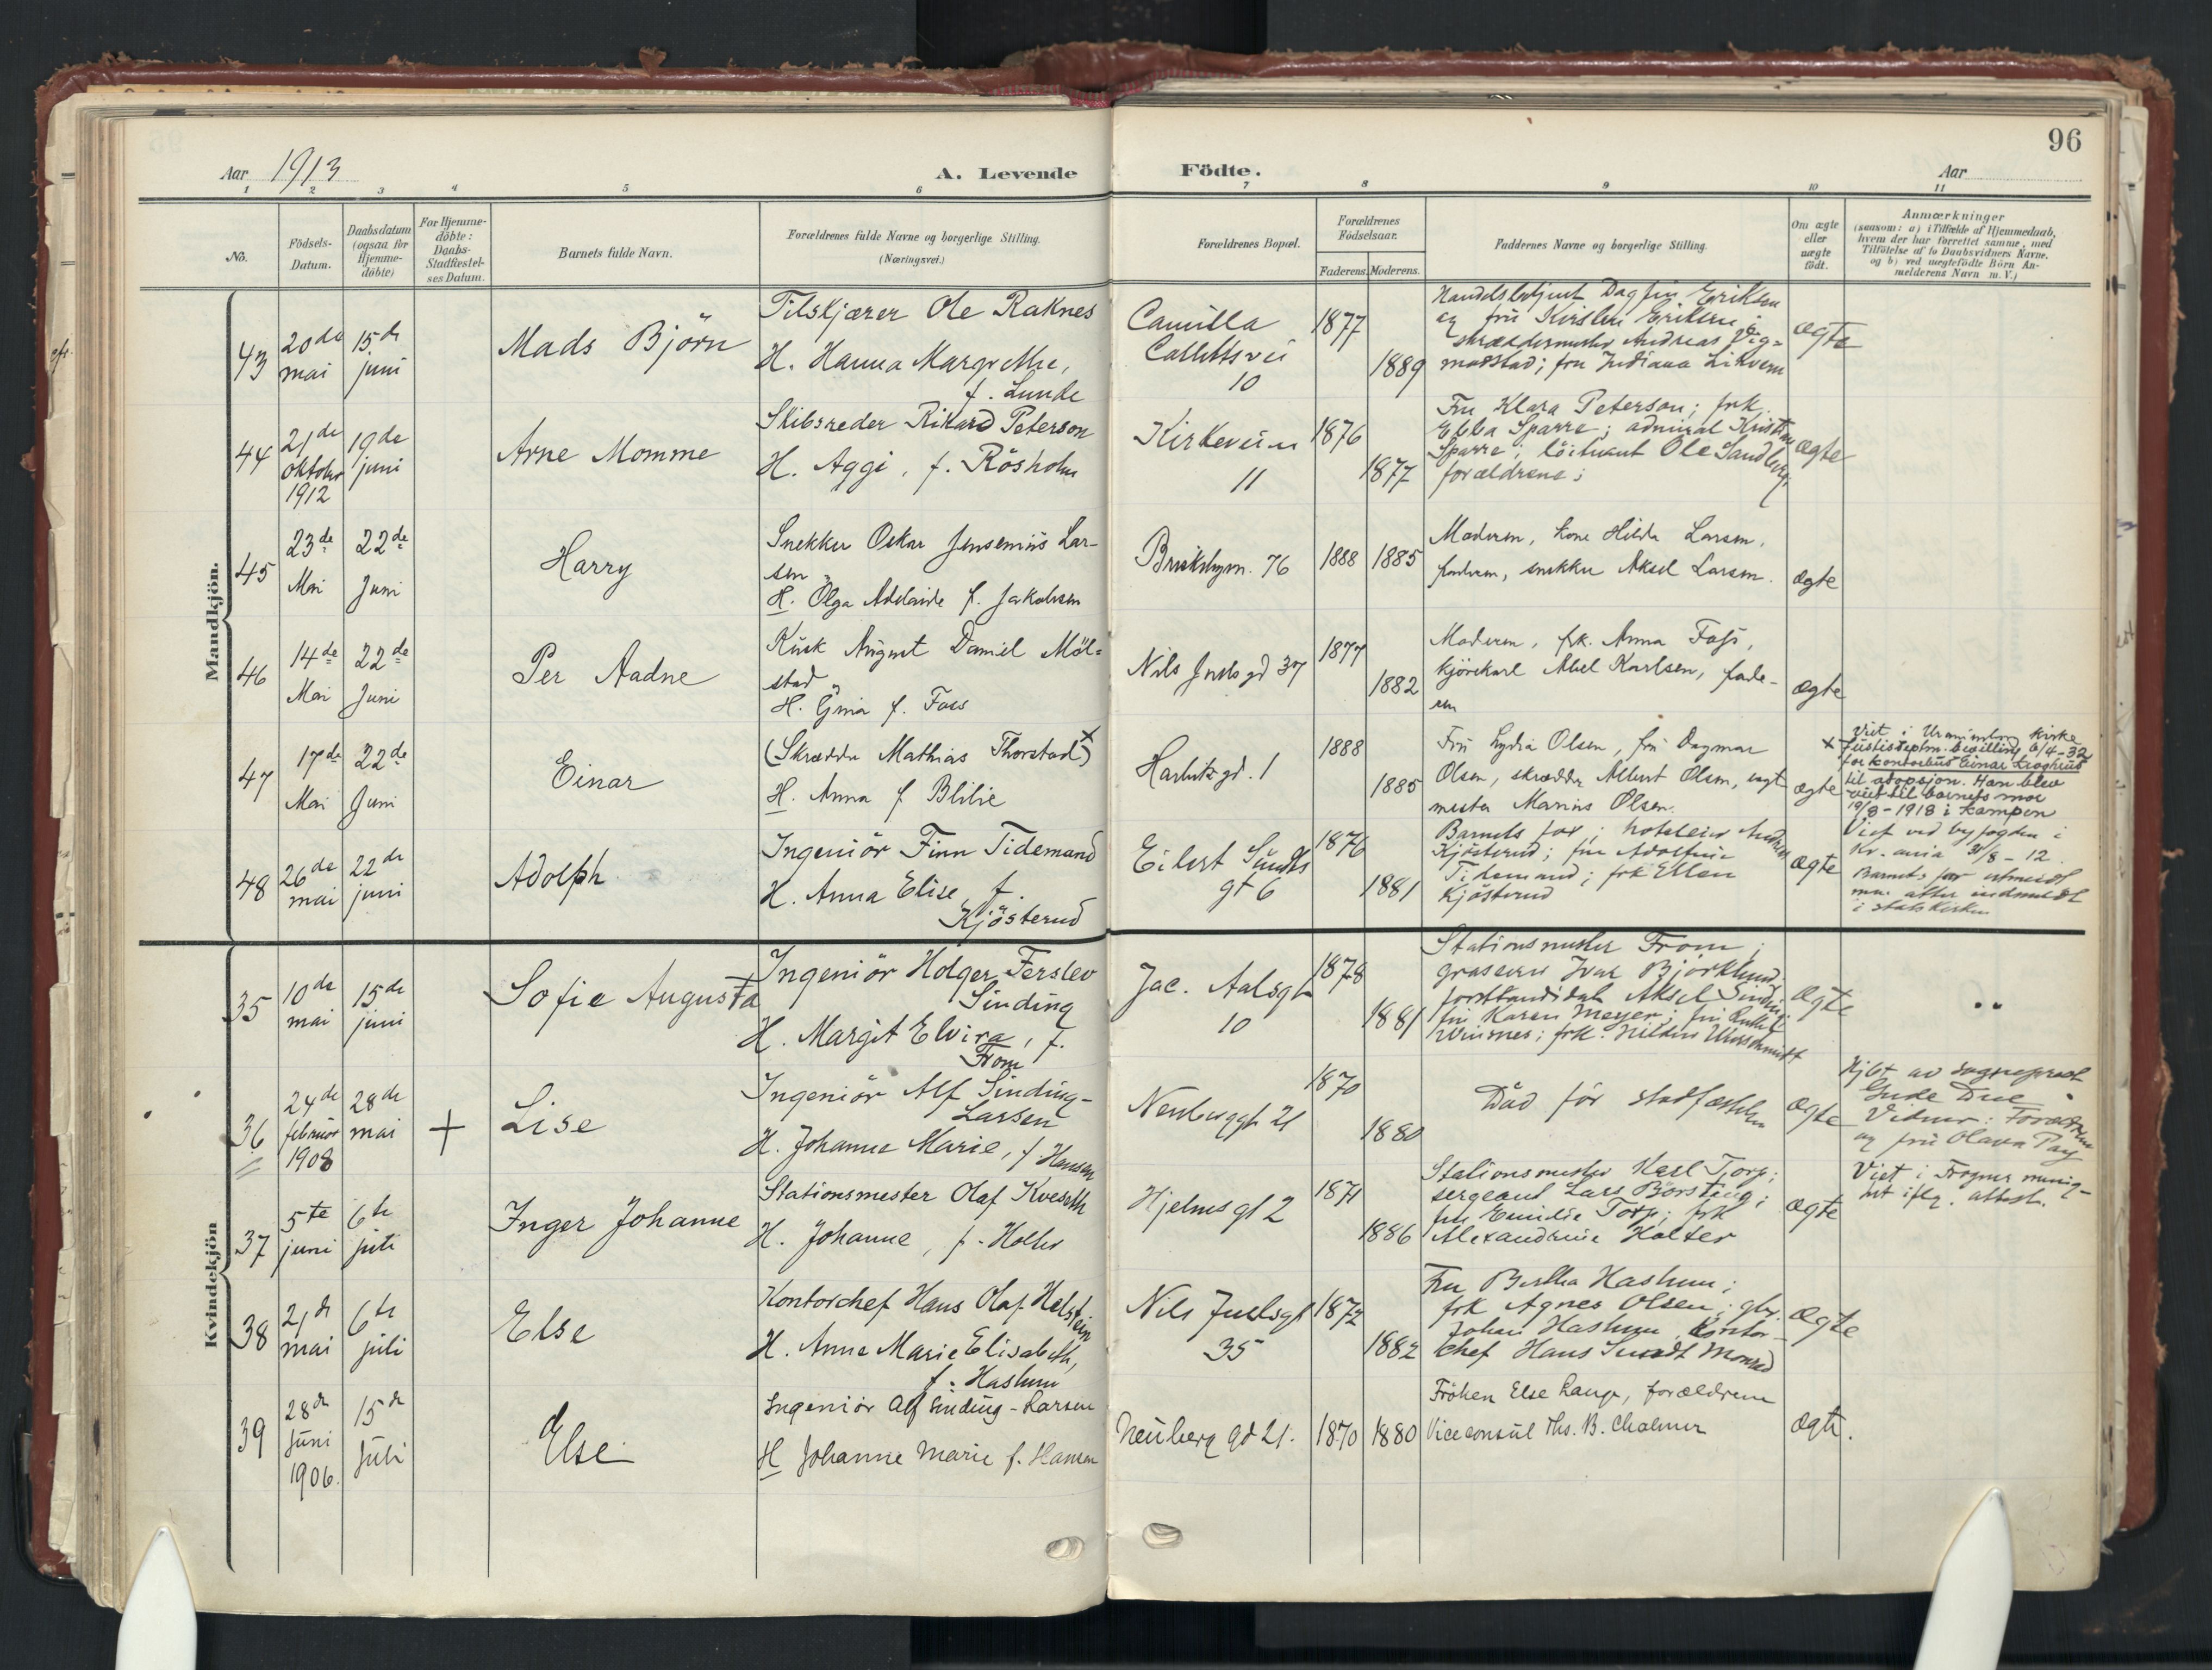 96
Aar 1913
A. Levende
Födte.
Aar
1 2 3 4 5 6 7 8 9 10 11
No.
Födsels-
Datum.
Daabsdatum
(ogsaa for
Hjemme-
döbte)
For Hjemme-
döbte:
Daabs-
Stadfæstel-
ses Datum.
Barnets fulde Navn.
Forældrenes fulde Navne og borgerlige Stilling.
(Næringsvei.)
Forældrenes Bopæl.
Forældrenes
Födselsaar.
Faderens.
Moderens.
Faddernes Navne og borgerlige Stilling.
Om ægte
eller
uægte
födt.
Anmærkninger
(saasom: a) i Tilfælde af Hjemmedaab,
hvem der har forrettet samme, med
Tilföielse af to Daabsvidners Navne,
og b) ved uægtefödte Börn An-
melderens Navn m. V.)
Mandkjön.
43
20de
mai
15de
juni
Mads Björn
Filskjærer Ole Raknes
H. Hanna Margrethe,
f. Lunde
Camilla
Collettsvei
10
1877
1889
Handelsbetjent Dagfin Eriksen
og fru Kirsten Eriksen;
skræddermester Andreas Vig-
mostad; fru Indiana
ægte
44
21de
oktober
1912
19de
juni
Arne Momme
Skibsreder Rikard Peterson
H. Aggi, f. Rösholm
Kirkeveien
11
1876
1877
Fru Klara Peterson; frk.
Ebba Sparre; admiral Kristian
Sparre; löitnant Ole Sandberg;
forældrene;
ægte
45
23de
Mai
22de
Juni
Harry
Snekker Oskar Jensenius Lar-
sen
H. Olga Adelaide f. Jakobsen
76
1888
1885
Moderen, kone Hilda Larsen,
faderen, snekker Aksel Larsen.
ægte
46
14de
Mai
22de
Juni
Per Aadne
Kusk August Daniel Möl-
stad
H. Gina f. Foss
Nils Juels gd 37
1877
1882
Moderen, frk. Anna Foss,
kjörekarl Abel Karlsen, fade-
ren
ægte
47
17de
Mai
22de
Juni
Einar
(Skrædder Mathias Thorstad) x
H. Anna f Blilie
gd. 1
1888
1885
Fru Lydia Olsen, fru Dagmar
Olsen, skrædder Albert Olsen, vagt
mester Marius Olsen.
ægte
Viet i Uranienborg kirke
x Justisdeptm. bevilling 6/4-32
for kontorbud Einar Kroghrud
til adopsjon. Han blev
viet til barnets mor
19/8-1918 i Kampen
48
26de
mai
22de
juni
Adolph
Ingeniör Finn Tidemand
H. Anna Elise, f.
Kjösterud
Eilert Sundts
gt 6
1876
1881
Barnets far; hoteleier Andreas
Kjösterud; fru Adolfine
Tidemand; frk Ellen
Kjösterud
ægte
Viet ved byfogden i
Kr.ania 31/8-12.
Barnets far utmeldt
men atter indmeldt
i statskirken
Kvindekjön
35
10de
mai
15de
juni
Sofie Augusta
Ingeniör Holger Ferslev
Sinding
H. Margit Elvira, f.
From
Jac. Aalsgt
10
1878
1881
Stationsmester From;
grosserer Ivar Björklund;
forstkandidat Aksel Sinding;
fru Karen Meyer; fru
Winsnes; frk.
ægte
36
24de
februar
1908
28de
mai
+
Lise
Ingeniör Alf Sinding-
Larsen
H. Johanne Marie, f. Hansen
Neuberggt 21
1870
1880
Död för stadfæstelsen
ægte
Hjdt av sogneprest
Gude Due
Vidner: Forældrene
og fru Olava
37
5te
juni
6te
juli
Inger Johanne
Stationsmester Olaf Kveseth
H. Johanne, f. Holter
Hjelms gt 2
1871
1886
Stationsmester Karl Torp;
sergeant Lars Börsting;
fru Emilie Torp; frk
Alexandrine Holter
ægte
Viet i Frogner menig-
het iflg. attest.
38
21de
mai
6te
juli
Else
Kontorchef Hans Olaf Helstein
H. Anne Marie Elisabeth,
f. Hashun
Nils Juelsgt
35
1872
1882
Fru Bertha Hashun;
frk Agnes Olsen; gbr.
Johan Hashun, Kontor-
chef Hans Sundt Monrad
ægte
39
28de
Juni
1906.
15de
Juli
Else
Ingeniör Alf Sinding-Larsen
H Johanne Marie f. Hansen
Neuberg gd 21.
1870
1880
Fröken Else Lange, forældrene
Viceconsul Ths. B.
ægte.